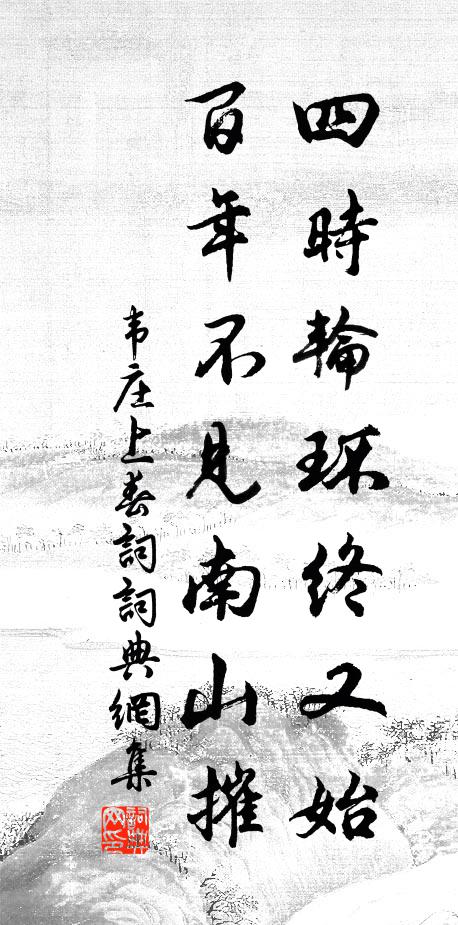 四時輪環終又始
百年不見南山摧
韦庄上春詞詞典網集